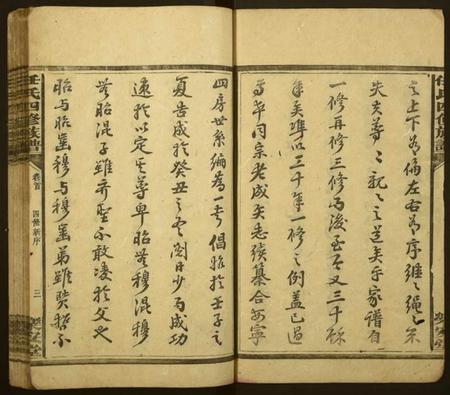 之上下為偏左右為序繩之繩之不
失夫尊之親之之道矣予家譜自
一修再修三修而後至今又三十餘
年矣準以三十年一修之例蓋已過
焉平同宗老成矢志續纂合安寧
四房世系編為一卷倡雖於壬子之
夏告成於癸丑之 閱日少而成功
遠於以定其尊卑昭無穆混穆
無昭混子雖齊聖不敢凌於父也
昭與昭齒穆與穆齒弟雖賢哲不
任氏四修族譜
卷首
四修新序
三
任氏四修族譜